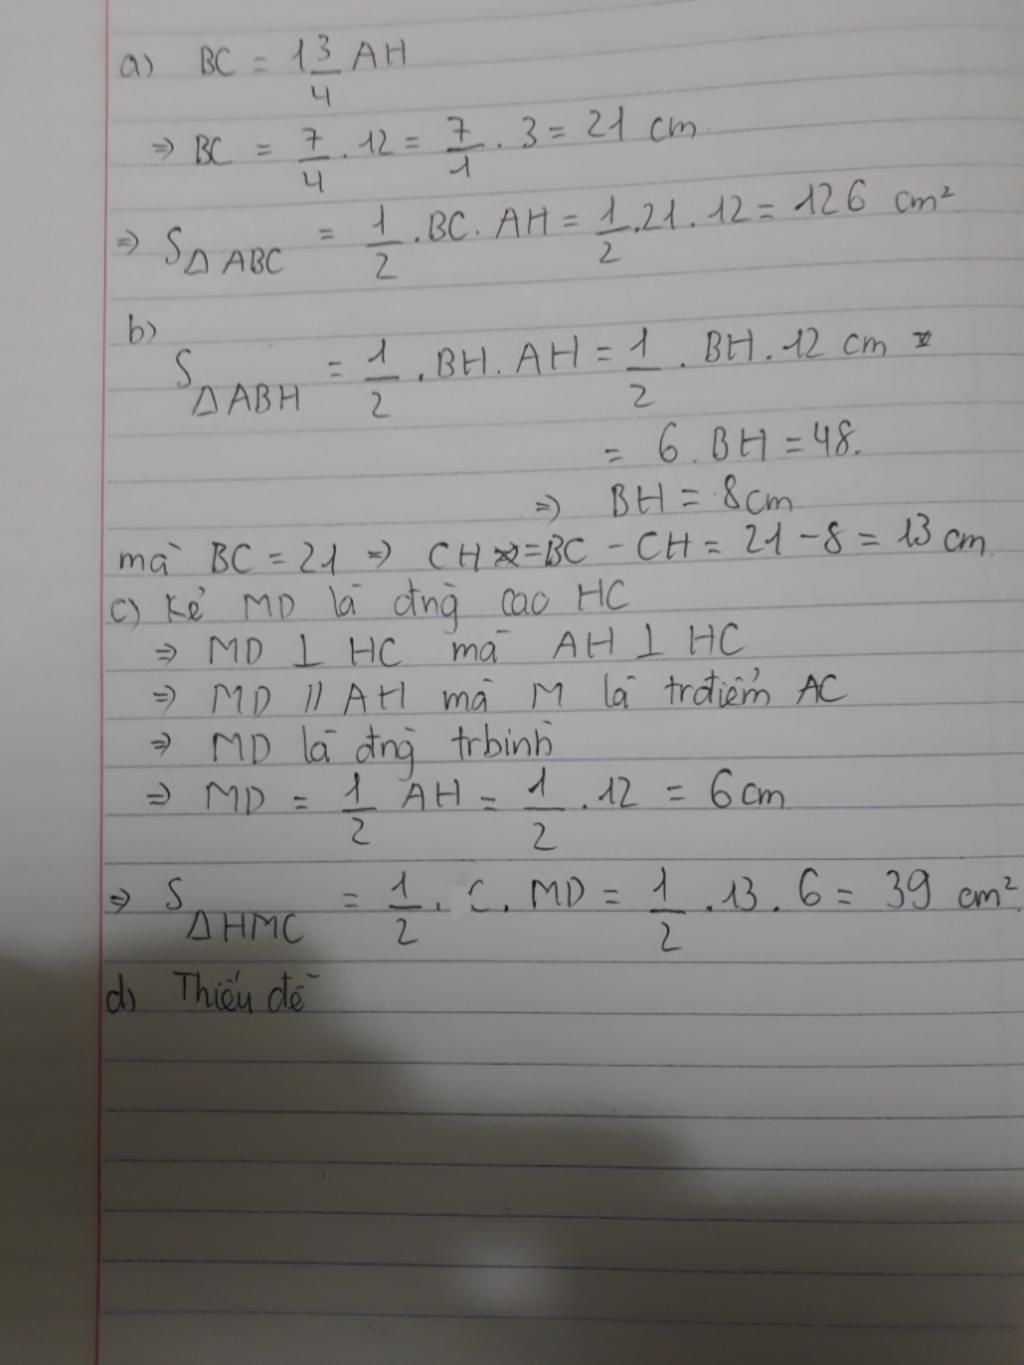 a) BC = 1 3/4 AH
⇒ BC = 7/4 . 12 = 7/1 . 3 = 21 cm
⇒ S ΔABC = 1/2 . BC . AH = 1/2 . 21 . 12 = 126 cm²
b)
S ΔABH = 1/2 . BH . AH = 1/2 . BH . 12 cm
= 6 . BH = 48.
⇒ BH = 8cm
mà BC = 21 ⇒ CH = BC - CH = 21 - 8 = 13 cm.
c) Kẻ MD là đng̀ cao HC
⇒ MD ⊥ HC mà AH ⊥ HC
⇒ MD // AH mà M là trđiểm AC
⇒ MD là đng̀ trbình
⇒ MD = 1/2 AH = 1/2 . 12 = 6cm
⇒ S ΔHMC = 1/2 . C . MD = 1/2 . 13 . 6 = 39 cm²
d) Thiếu đề